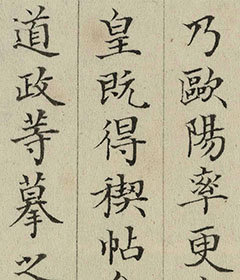 乃歐陽率更
皇既得稧帖
道政等摹之